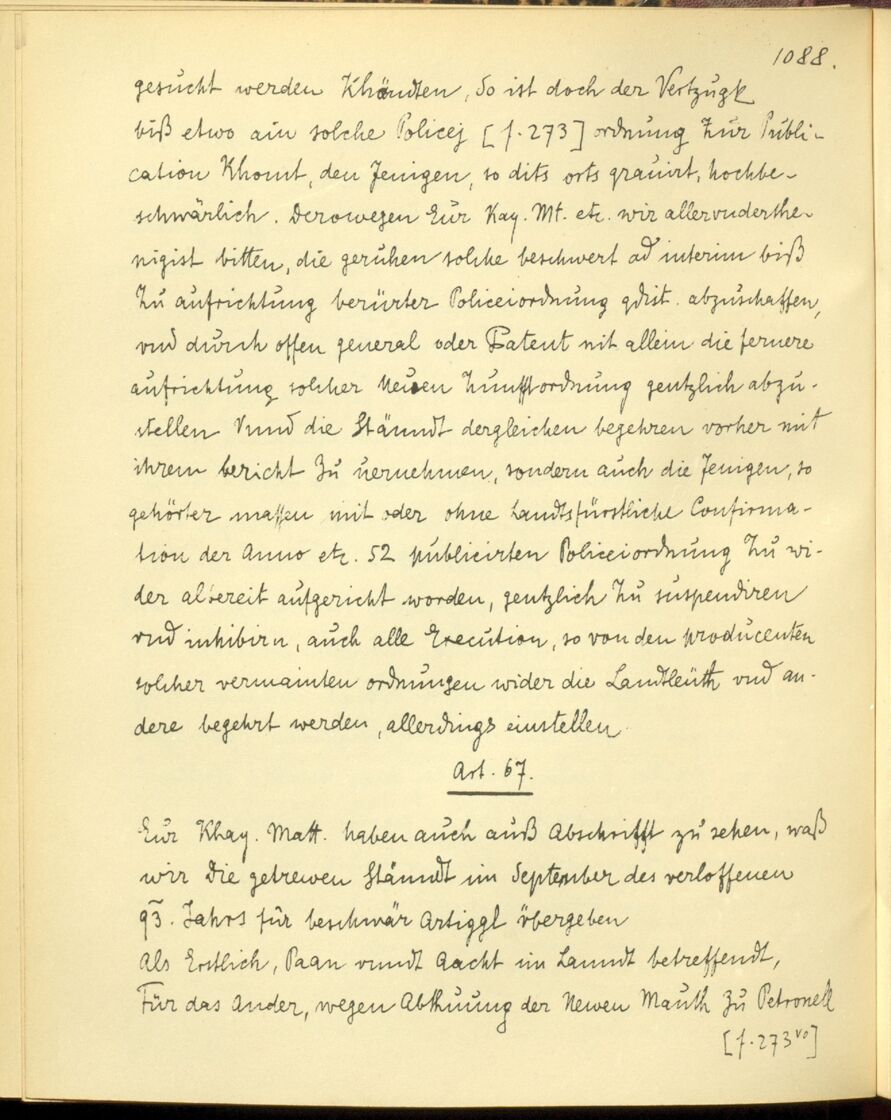 1088.
gesucht werden Khöndten, So ist doch der Vertzugk
biß etwo ain solche Policej [f. 273] ordnung zur Publi-
cation Khomt, den Jenigen, so dits orts grauirt, hochbe-
schwärlich. Derowegen Eur Kay. Mt. etc. wir allervnderthe-
nigist bitten, die geruhen solche beschwert ad interim biß
Zu aufrichtung berürter Policeiordnung gdist. abzuschaffen,
vnd durch offen general oder Patent nit allein die fernere
aufrichtung solcher Neuen Zunfftordnung gentzlich abzu-
stellen Vnnd die Stänndt dergleichen begehren vorher mit
ihrem bericht Zu uernehmen, sondern auch die Jenigen, so
gehörter massen mit oder ohne Landtsfürstliche Confirma-
tion der Anno etc. 52 publicirten Policeiordnung Zu wi-
der albereit aufgericht worden, gentzlich Zu suspendiren
vnd inhibirn, auch alle Execution, so von den producenten
solcher vermainten ordnungen wider die Landtleüth vnd an-
dere begehrt werden, allerdings einstellen.
Art. 67.
Eur Khay. Matt. haben auch auß Abschrifft zu sehen, waß
wir Die getrewen Stänndt im September des verloffenen
93. Jahrs für beschwär Artiggl übergeben
Als Erstlich, Paan vnndt Aacht im Lanndt betreffendt,
Für das Ander, wegen Abthuung der Newen Mauth Zu Petronell
[f. 273vo]